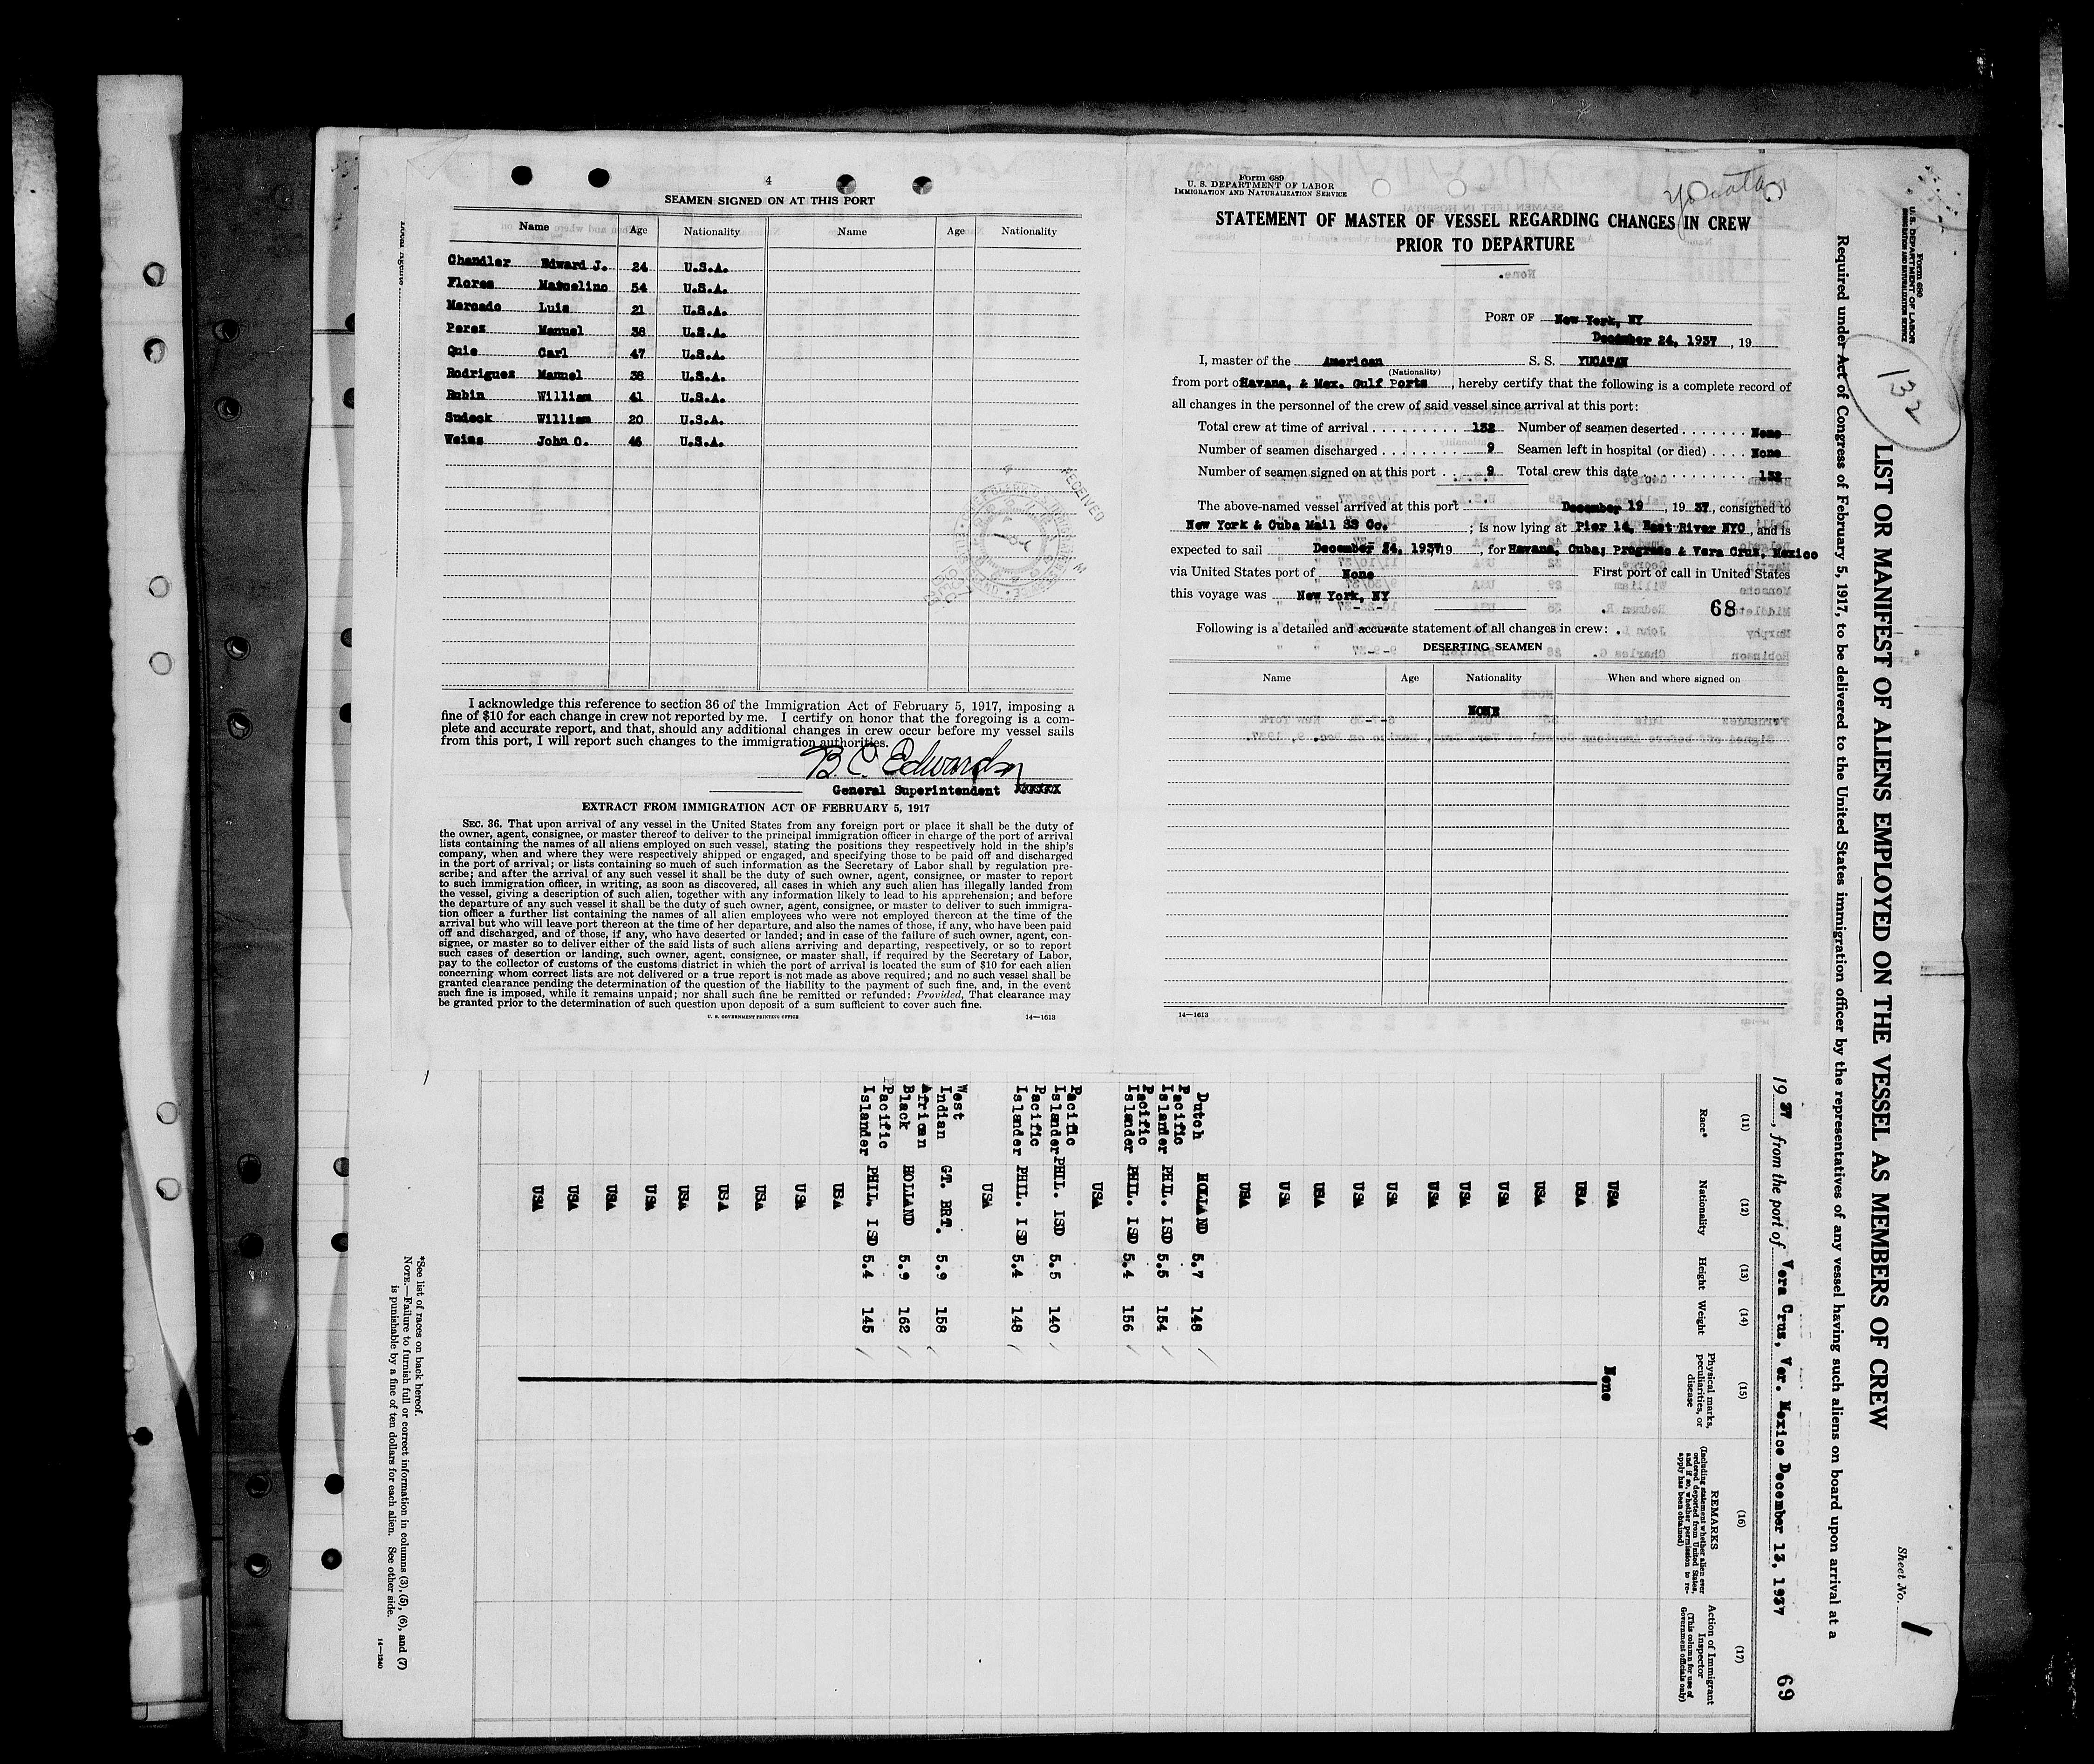 4
SEAMEN SIGNED ON AT THIS PORT
Name Age Nationality Name Age Nationality
Chandler Edward J. 24 U.S.A.
Flores Matcelino 54 U.S.A.
Mercado Luis 21 U.S.A.
Perez Manuel 38 U.S.A.
Quie Carl 47 U.S.A.
Rodriguez Manuel 38 U.S.A.
Rubin William 41 U.S.A.
Sudeck William 20 U.S.A.
Weiss John O. 46 U.S.A.
RECEIVED
I acknowledge this reference to section 36 of the Immigration Act of February 5, 1917, imposing a
fine of $10 for each change in crew not reported by me. I certify on honor that the foregoing is a com-
plete and accurate report, and that, should any additional changes in crew occur before my vessel sails
from this port, I will report such changes to the immigration authorities.
B. C. Edwards
General Superintendent XXXXXX
EXTRACT FROM IMMIGRATION ACT OF FEBRUARY 5, 1917
SEC. 36. That upon arrival of any vessel in the United States from any foreign port or place it shall be the duty of
the owner, agent, consignee, or master thereof to deliver to the principal immigration officer in charge of the port of arrival
lists containing the names of all aliens employed on such vessel, stating the positions they respectively hold in the ship's
company, when and where they were respectively shipped or engaged, and specifying those to be paid off and discharged
in the port of arrival; or lists containing so much of such information as the Secretary of Labor shall by regulation pre-
scribe; and after the arrival of any such vessel it shall be the duty of such owner, agent, consignee, or master to report
to such immigration officer, in writing, as soon as discovered, all cases in which any such alien has illegally landed from
the vessel, giving a description of such alien, together with any information likely to lead to his apprehension; and before
the departure of any such vessel it shall be the duty of such owner, agent, consignee, or master to deliver to such immigra-
tion officer a further list containing the names of all alien employees who were not employed thereon at the time of the
arrival but who will leave port thereon at the time of her departure, and also the names of those, if any, who have been paid
off and discharged, and of those, if any, who have deserted or landed; and in case of the failure of such owner, agent, con-
signee, or master so to deliver either of the said lists of such aliens arriving and departing, respectively, or so to report
such cases of desertion or landing, such owner, agent, consignee, or master shall, if required by the Secretary of Labor,
pay to the collector of customs of the customs district in which the port of arrival is located the sum of $10 for each alien
concerning whom correct lists are not delivered or a true report is not made as above required; and no such vessel shall be
granted clearance pending the determination of the question of the liability to the payment of such fine, and, in the event
such fine is imposed, while it remains unpaid; nor shall such fine be remitted or refunded: Provided, That clearance may
be granted prior to the determination of such question upon deposit of a sum sufficient to cover such fine.
U. S. GOVERNMENT PRINTING OFFICE 14—1613
Form 689
U. S. DEPARTMENT OF LABOR
IMMIGRATION AND NATURALIZATION SERVICE
Yucatan
STATEMENT OF MASTER OF VESSEL REGARDING CHANGES IN CREW
PRIOR TO DEPARTURE
PORT OF New York, NY
December 24, 1937, 19
I, master of the American S. S. YUCATAN
(Nationality)
from port of Havana, & Mex. Gulf Ports, hereby certify that the following is a complete record of
all changes in the personnel of the crew of said vessel since arrival at this port:
Total crew at time of arrival 132 Number of seamen deserted None
Number of seamen discharged 9 Seamen left in hospital (or died) None
Number of seamen signed on at this port 9 Total crew this date 132
The above-named vessel arrived at this port December 19, 1937, consigned to
New York & Cuba Mail SS Co.; is now lying at Pier 14, East River NYC, and is
expected to sail December 24, 1937 19, for Havana, Cuba; Progreso & Vera Cruz, Mexico
via United States port of None First port of call in United States
this voyage was New York, NY
68
Following is a detailed and accurate statement of all changes in crew:
DESERTING SEAMEN
Name Age Nationality When and where signed on
NONE
14—1613
Form 680
U. S. DEPARTMENT OF LABOR
IMMIGRATION AND NATURALIZATION SERVICE
132
Sheet No. 1
LIST OR MANIFEST OF ALIENS EMPLOYED ON THE VESSEL AS MEMBERS OF CREW
Required under Act of Congress of February 5, 1917, to be delivered to the United States immigration officer by the representatives of any vessel having such aliens on board upon arrival at a
1937, from the port of Vera Crus, Ver. Mexico December 13, 1937
69
(11) (12) (13) (14) (15) (16) (17)
Race* Nationality Height Weight Physical marks, peculiarities, or disease REMARKS (Including statement whether alien ever ordered deported from United States, and if so, whether permission to re-apply has been obtained) Action of Immigrant Inspector (This column for use of Government officials only)
USA None
USA
USA
USA
USA
USA
USA
USA
USA
USA
USA
Dutch HOLLAND 5.7 148
Pacific Islander PHIL. ISD 5.5 154
Pacific Islander PHIL. ISD 5.4 156
USA
Pacific Islander PHIL. ISD 5.5 140
Pacific Islander PHIL. ISD 5.4 148
USA
West Indian GT. BRT. 5.9 158
African Black HOLLAND 5.9 162
Pacific Islander PHIL. ISD 5.4 145
USA
USA
USA
USA
USA
USA
USA
USA
USA
*See list of races on back hereof.
NOTE.—Failure to furnish full or correct information in columns (3), (5), (6), and (7)
is punishable by a fine of ten dollars for each alien. See other side.
14—1240